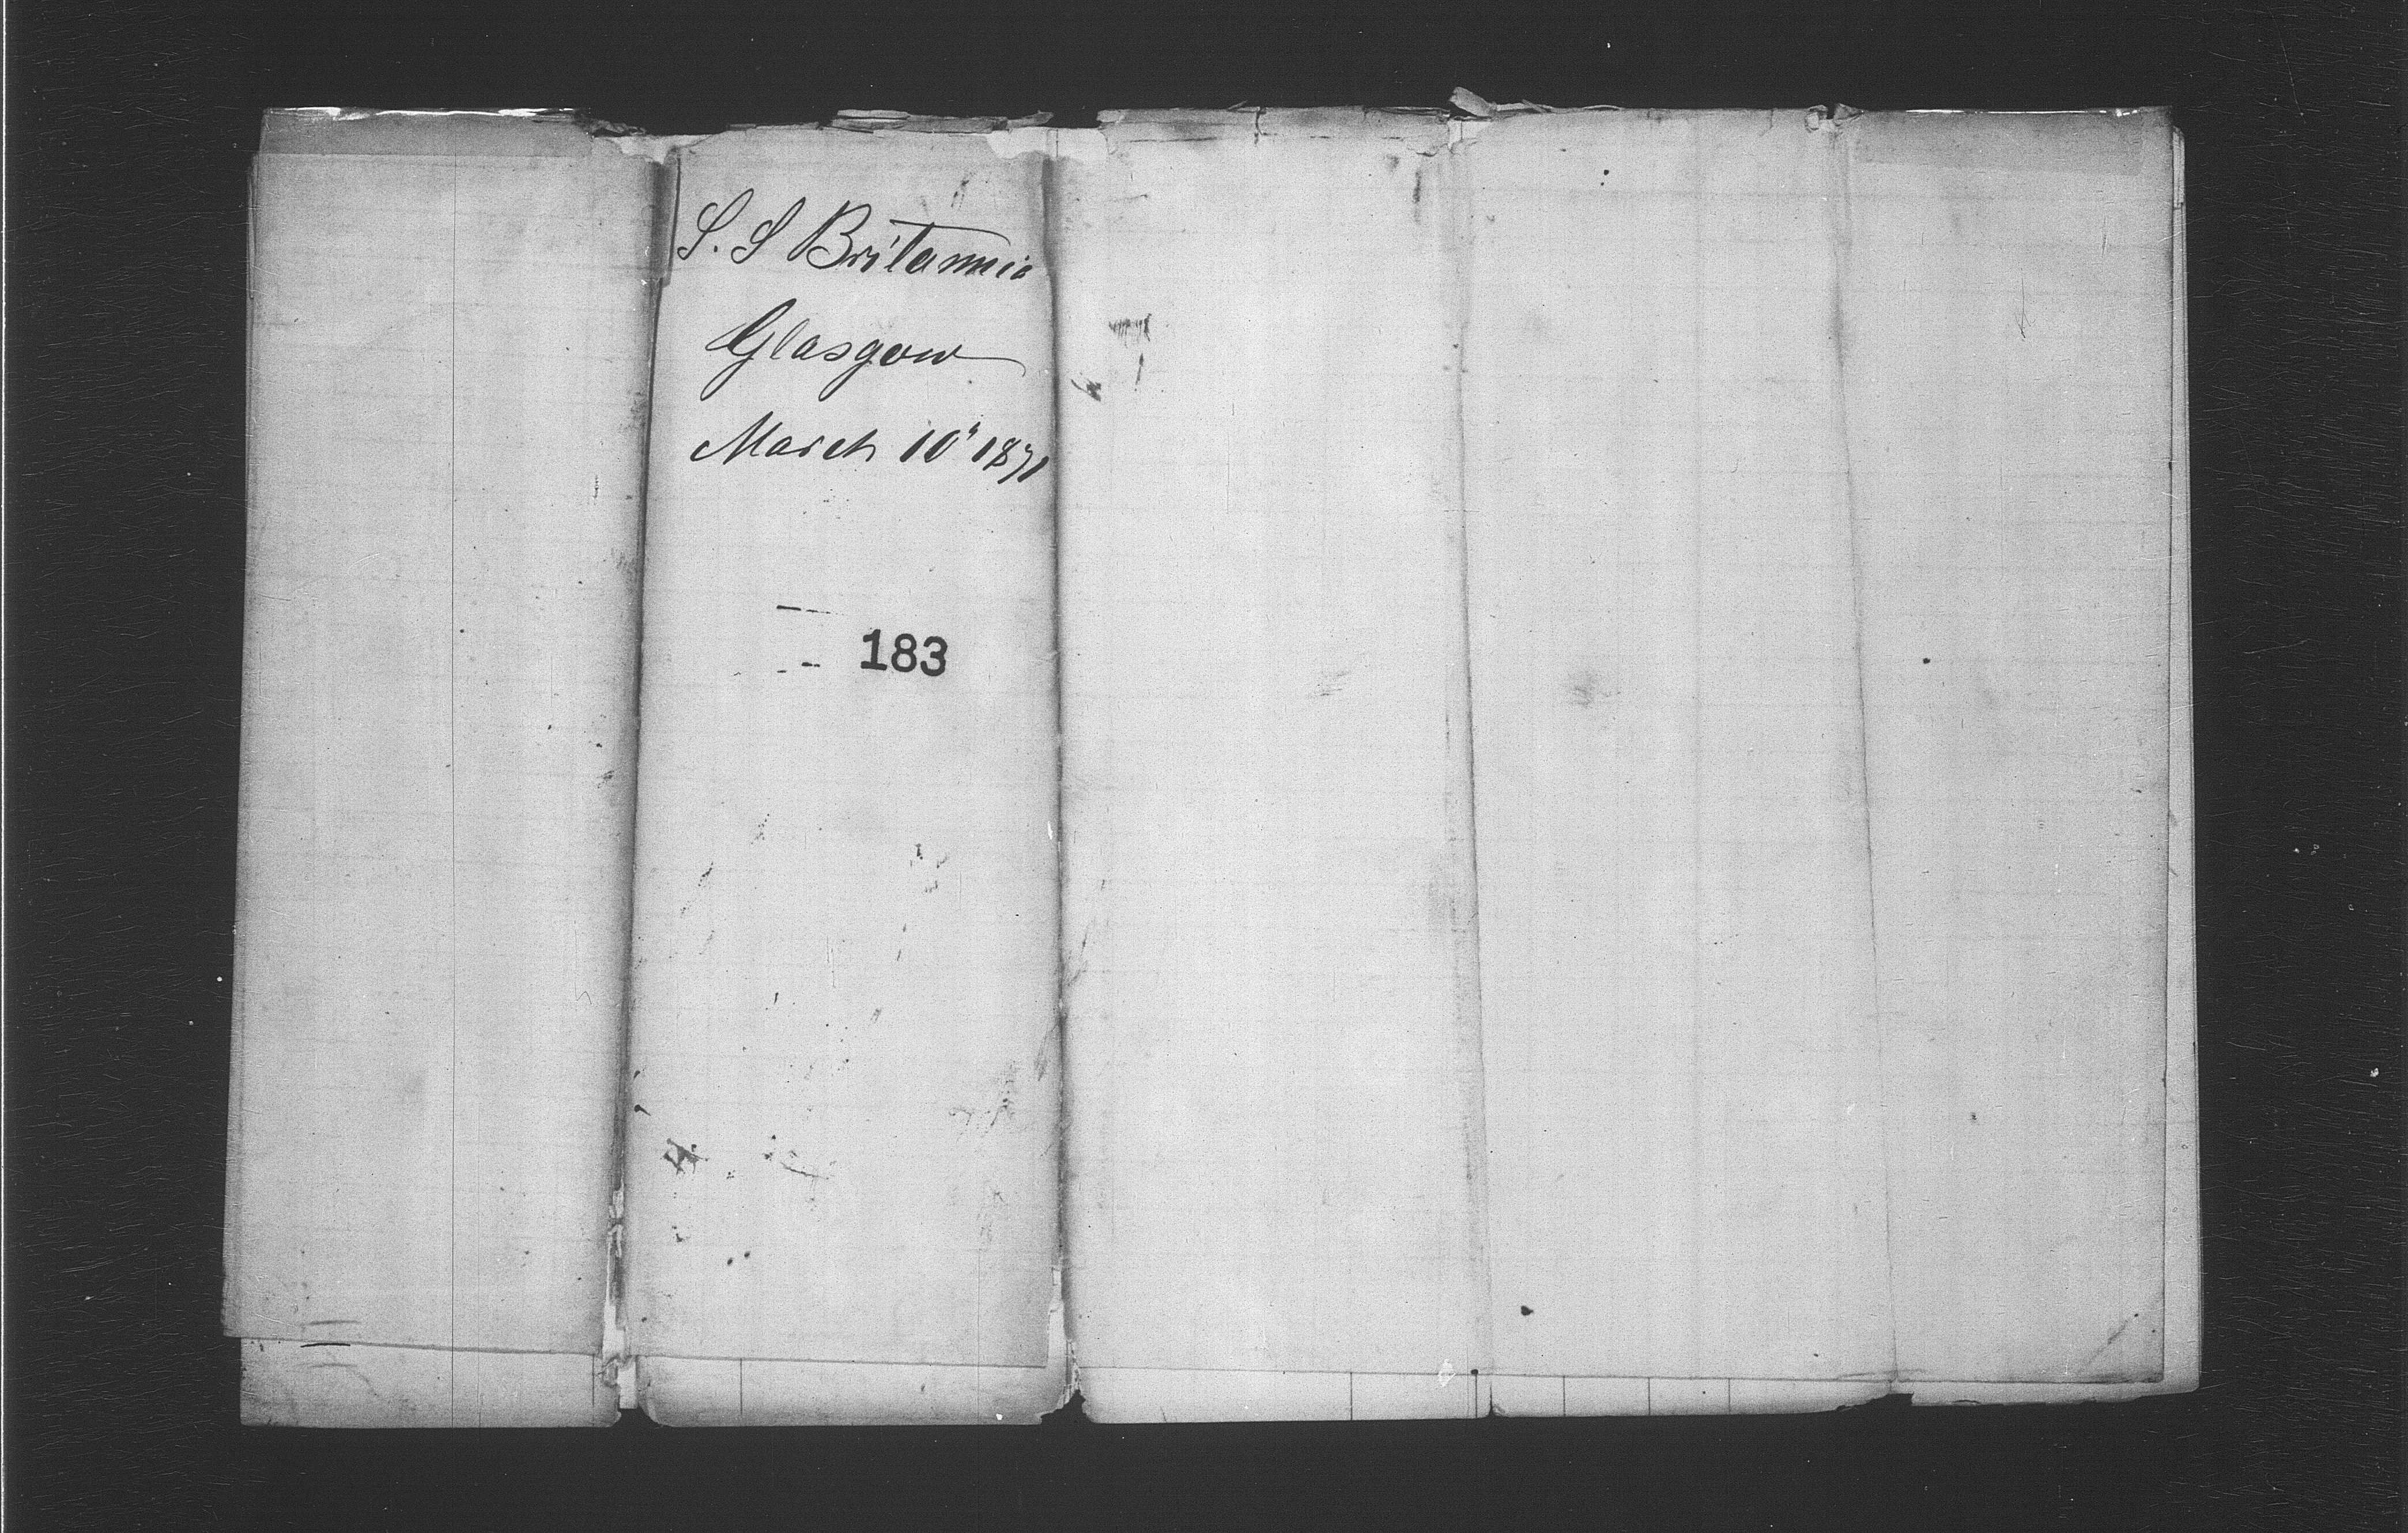 S. S Britannia
Glasgow
March 10" 1871
183